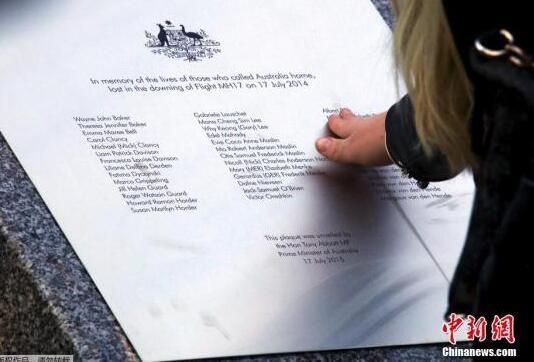 In memory of the lives of those who called Australia home,
lost in the downing of Flight MH17 on 17 July 2014
Wayne John Baker
Theresa Jennifer Baker
Emma Maree Bell
Carol Clancy
Michael (Mick) Clancy
Liam Patrick Davison
Francesca Louise Davison
Liliane Derden
Fatima Dyczynski
Marco Grippeling
Jill Helen Guard
Roger Watson Guard
Howard Roman Horder
Susan Marilyn Horder
Gabriele Lauschet
Mona Cheng Sim Lee
Why Keong (Gary) Lee
Edel Mahady
Evie Coco Anne Maslin
Mo Robert Anderson Maslin
Otis Samuel Frederick Maslin
Nicoll (Nick) Charles Anderson
Mary (MER) Elizabeth
Gerardus (GER) Frederick
Dafne Nieveen
Jack Samuel O'Brien
Victor Oreshkin
van den Hende
van den Hende
This plaque was unveiled by
the Hon Tony Abbott MP
Prime Minister of Australia
17 July 2015
中新网
www.chinanews.com